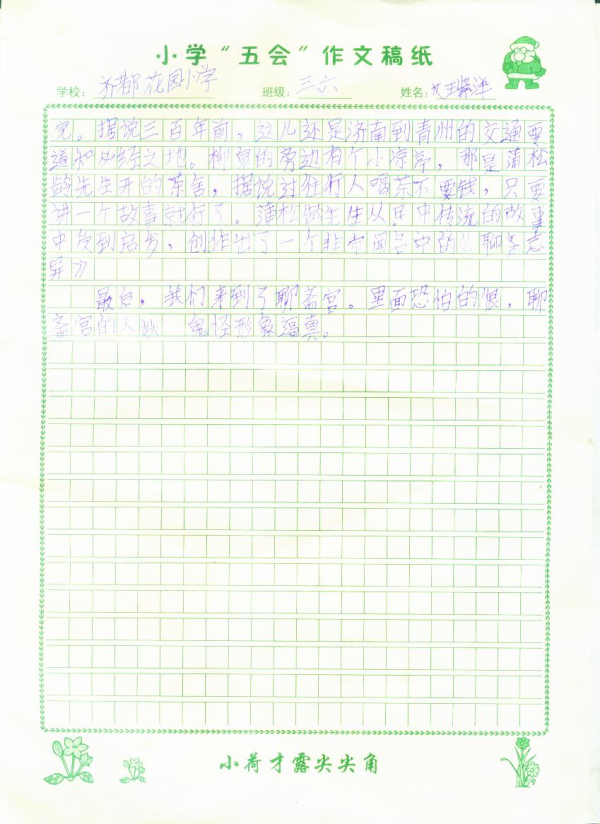 小学“五会”作文稿纸
学校：齐都花园小学 班级：三六 姓名：
觉。据说三百年前，这儿还是济南到青州的交通要
道和必经之地。柳泉的旁边有个小凉亭，那是蒲松
龄先生开的茶舍，据说过往行人喝茶不要钱，只要
讲一个故事就行了。蒲松龄先生从中传说的故事
中受到启发，创作出了一个非常闻名中的《聊斋志
异》
最后，我们来到了聊斋宫。里面恐怕的很，聊
斋宫的人 鬼怪形象逼真。
小荷才露尖尖角